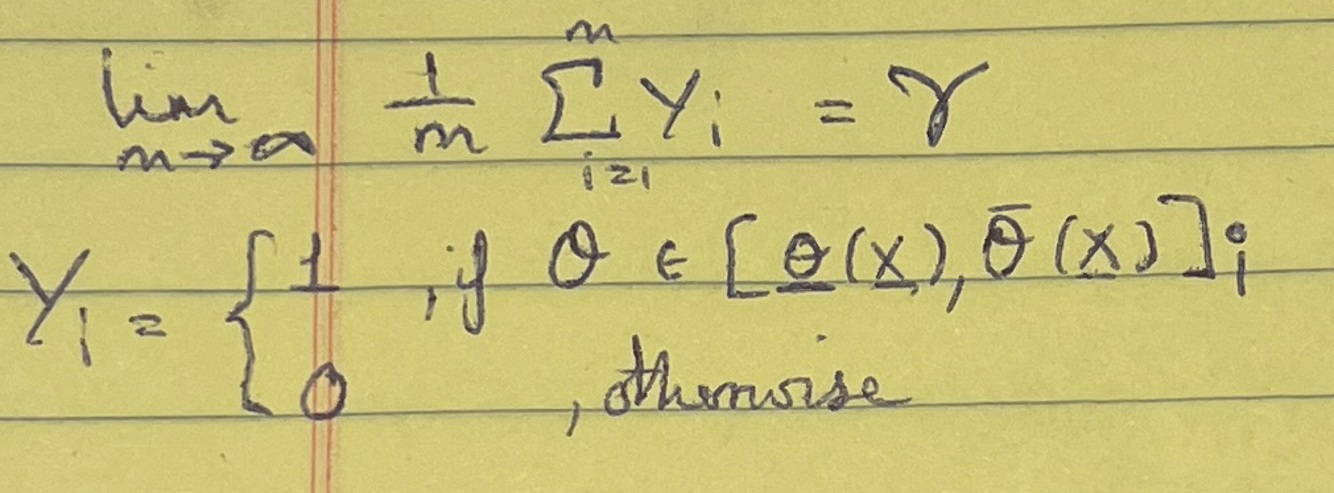 lim m→∞ 1/m ∑_{i=1}^{m} Y_i = γ
Y_i = { 1 , if θ ∈ [θ̲(X̲), θ̄(X̲)]_i
0 , otherwise